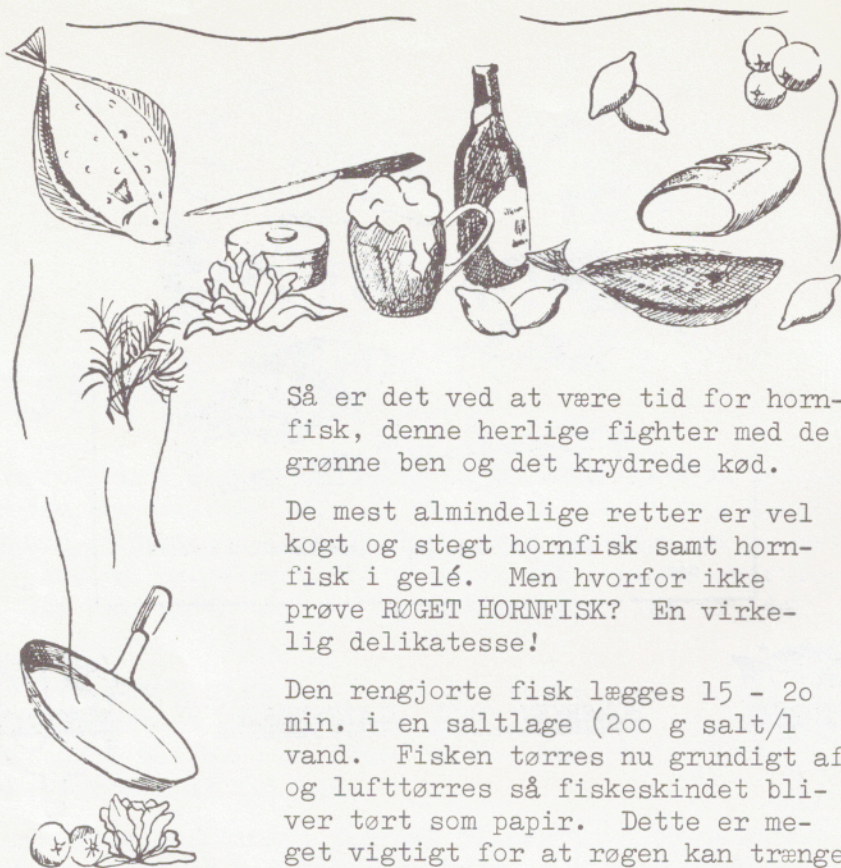 Så er det ved at være tid for horn-
fisk, denne herlige fighter med de
grønne ben og det krydrede kød.
De mest almindelige retter er vel
kogt og stegt hornfisk samt horn-
fisk i gelé. Men hvorfor ikke
prøve RØGET HORNFISK? En virke-
lig delikatesse!
Den rengjorte fisk lægges 15 - 2o
min. i en saltlage (2oo g salt/l
vand. Fisken tørres nu grundigt af
og lufttørres så fiskeskindet bli-
ver tørt som papir. Dette er me-
get vigtigt for at røgen kan trænge